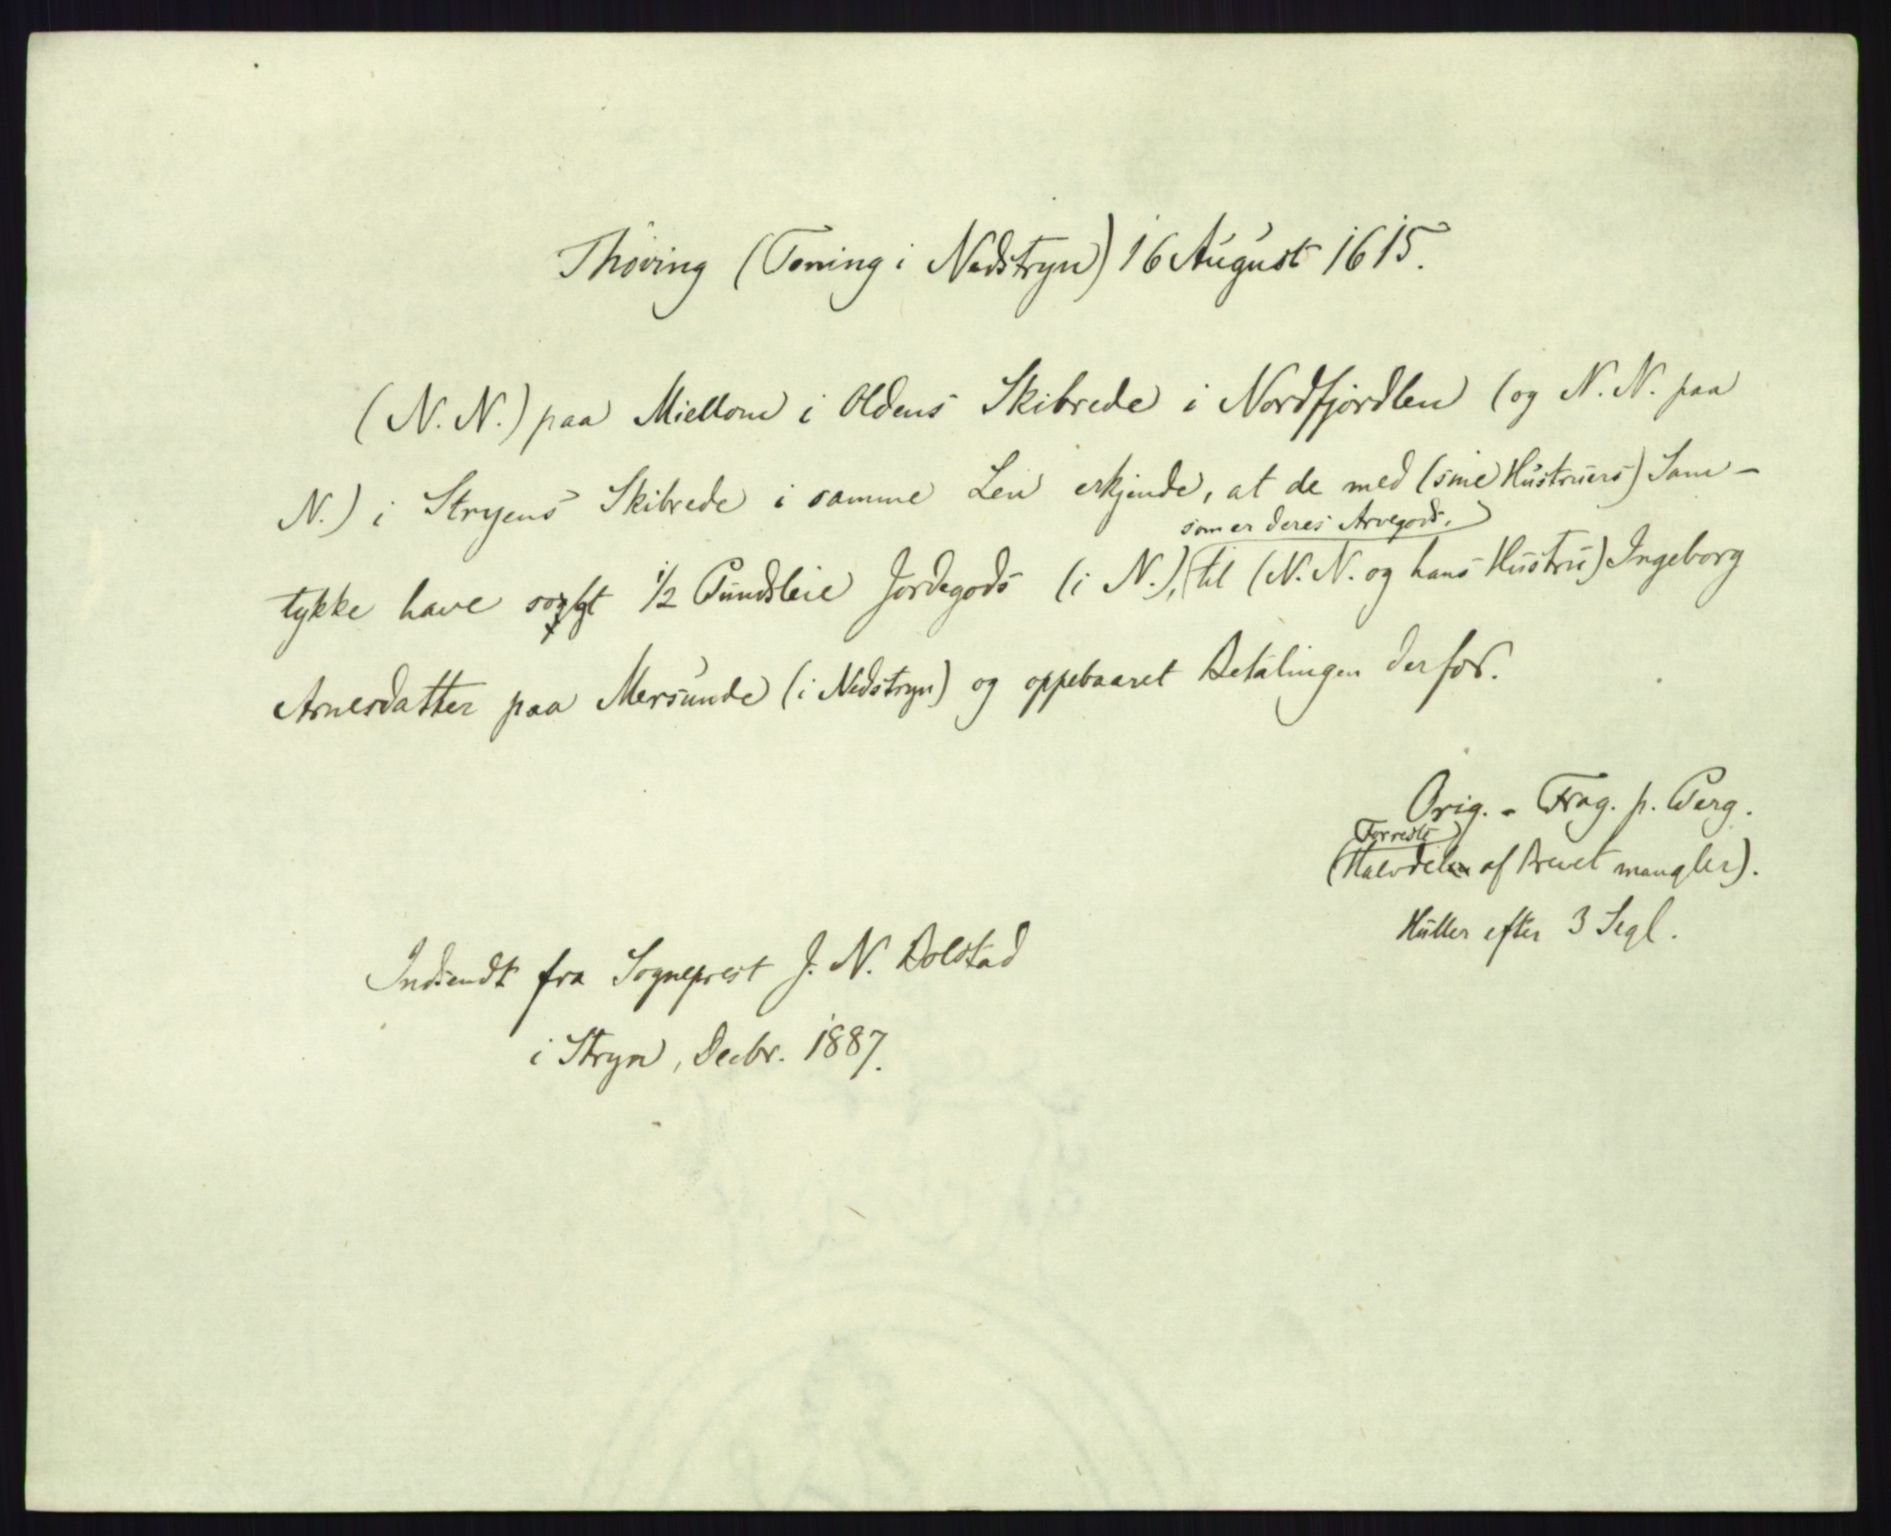 Thoving (Toning i Nedstryn) 16 August 1615.
(N. N.) paa Miellom i Oldens Skibrede i Nordfjordlen (og N. N. paa
N.) i Stryens Skibrede i samme Len erkjende, at de med (sine Hustruers) Sam-
som er deres Arvegods,
tykke have solgt 1/2 Pundsleie Jordegods (i N.), til (N. N. og hans Hustru) Ingeborg
Arnesdatter paa Mersunde (i Nedstryn) og oppebaaret Betalingen derfor.
Orig. - Frag. p. Perg.
Forreste
(Halvdel af Brevet mangler).
Huller efter 3 Segl.
Indsendt fra Sogneprest J. N. Bolstad
i Stryn, Decbr. 1887.